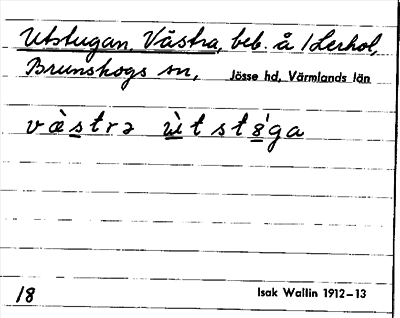 Utstugan, Västra, beb. å 1 Lerhol,
Brunskogs sn, Jösse hd, Värmlands län
væ̀strə ùtst8́ga
18 Isak Wallin 1912–13